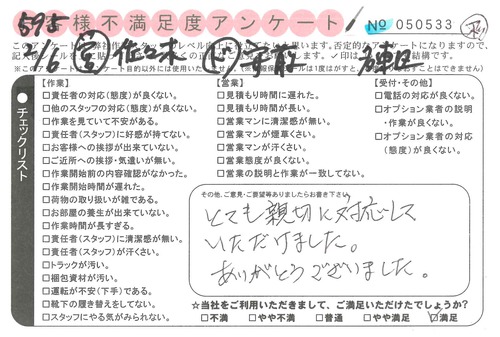 お客様不満足度アンケート
No 050533
595
【作業】
□責任者の対応(態度)が良くない。
□他のスタッフの対応(態度)が良くない。
□作業を見ていて不安がある。
□責任者(スタッフ)に好感が持てない。
□お客様への挨拶が出来ていない。
□ご近所への挨拶・気遣いが無い。
□作業開始前の内容確認がなかった。
□作業開始時間が遅れた。
□荷物の取り扱いが雑である。
□お部屋の養生が出来ていない。
□作業時間が長すぎる。
□責任者(スタッフ)に清潔感が無い。
□責任者(スタッフ)が汗くさい。
□トラックが汚い。
□梱包資材が汚い。
□運転が不安(下手)である。
□靴下の履き替えをしてない。
□スタッフにやる気がみられない。
チェックリスト
【営業】
□見積もり時間に遅れた。
□見積もり時間が長い。
□営業マンに清潔感が無い。
□営業マンが煙草くさい。
□営業マンが汗くさい。
□営業態度が良くない。
□営業の説明と作業が一致してない。
【受付・その他】
□電話の対応が良くない。
□オプション業者の説明・作業が良くない。
□オプション業者の対応(態度)が良くない。
その他、ご意見・ご要望等ありましたらお書き下さい。
とても親切に対応して
いただけました。
ありがとうございました。
☆当社をご利用いただきまして、ご満足いただけたでしょうか?
□不満 □やや不満 □普通 □やや満足 ☑満足